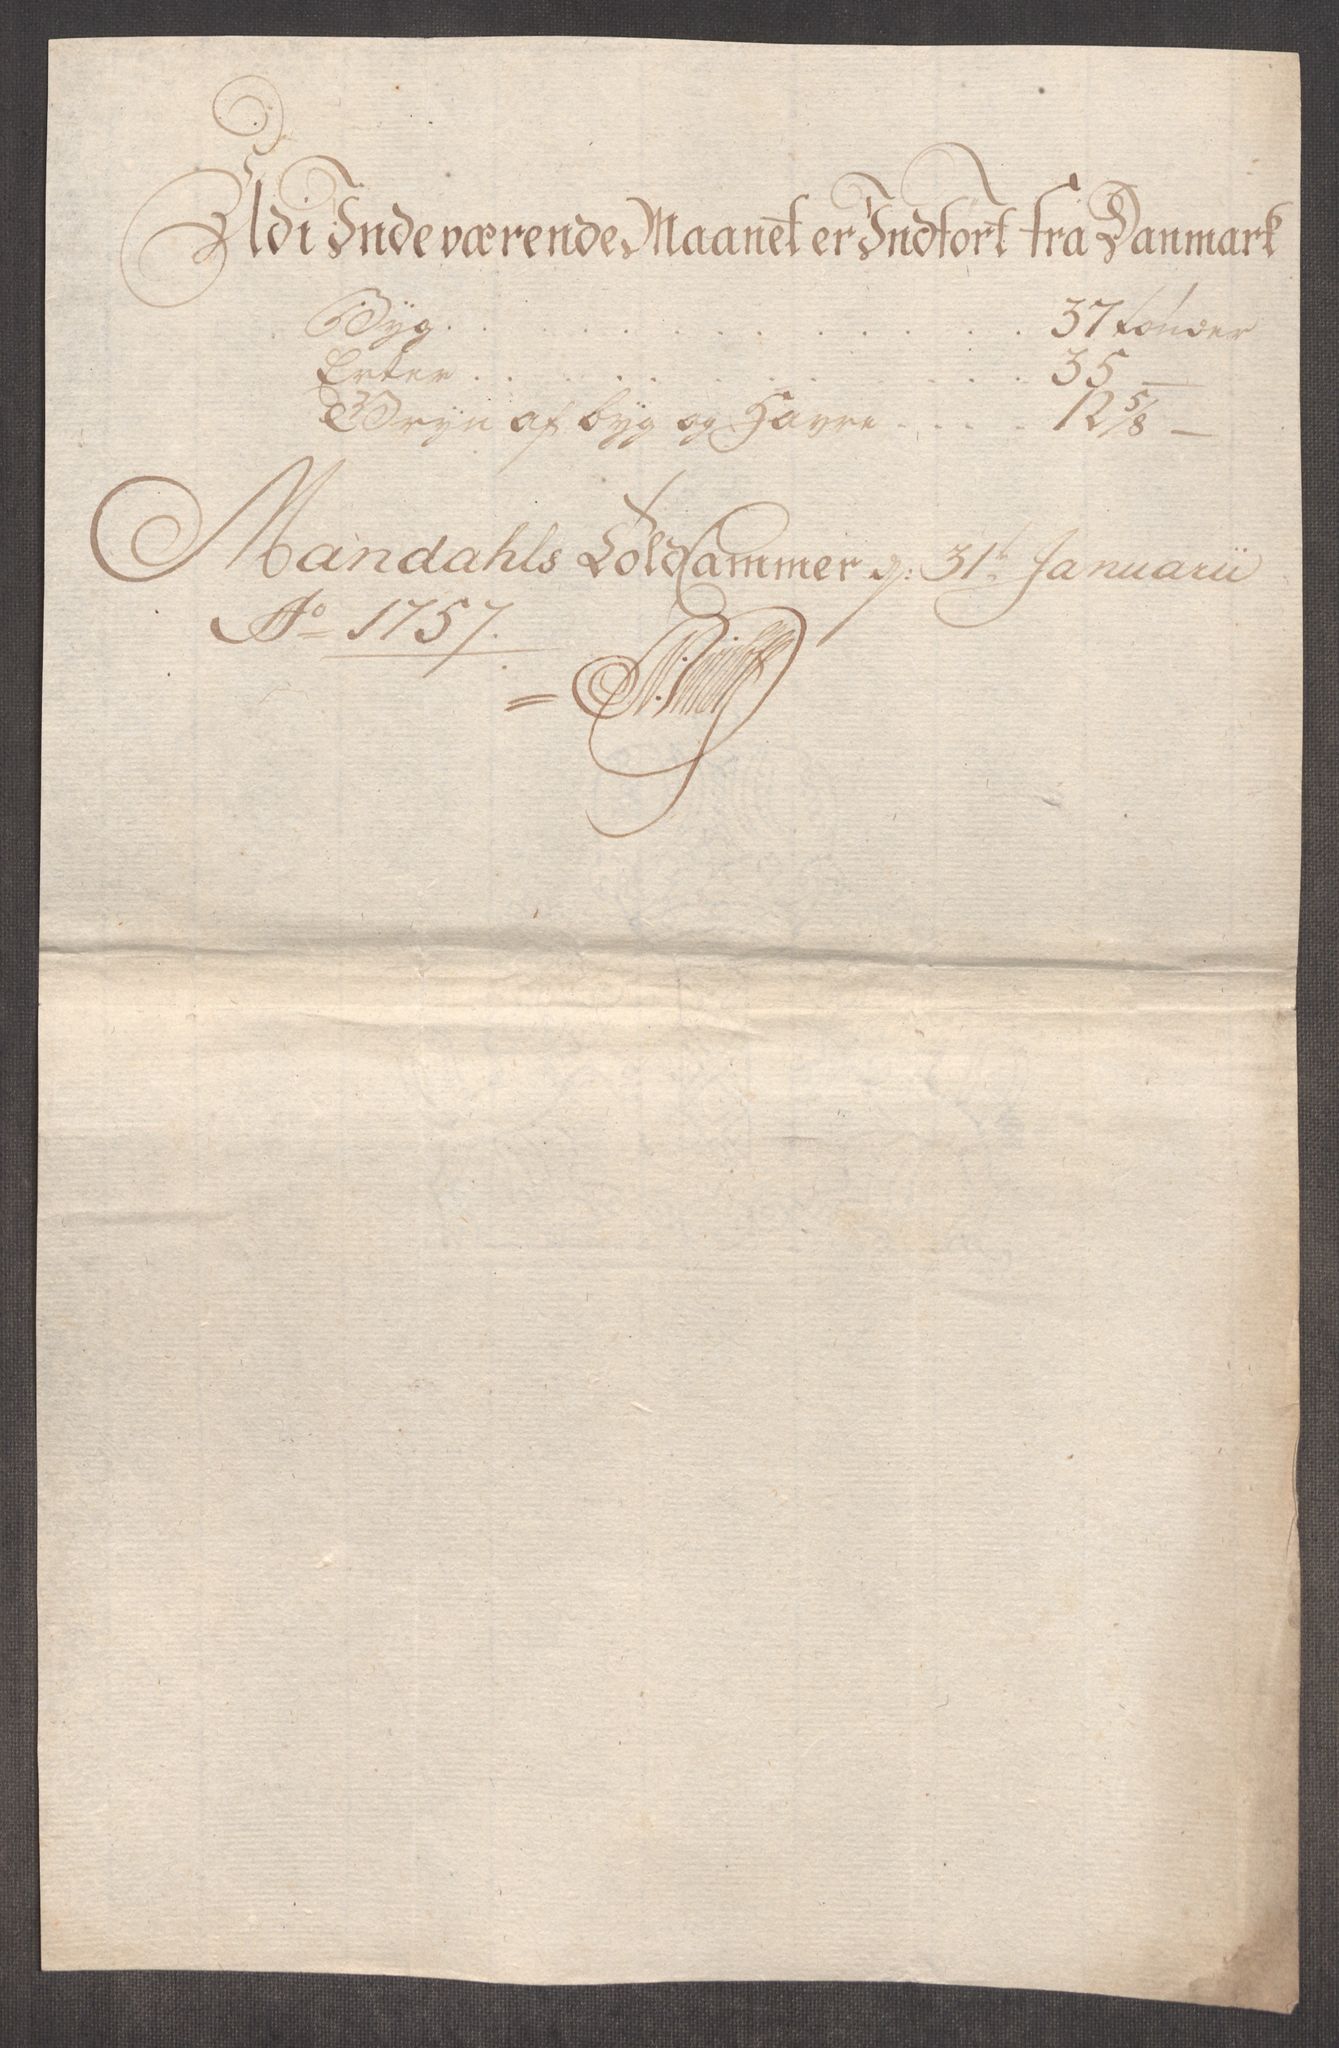 Udi Indeværende Maanet er Indført fra Danmark
Byg . . . . . . . . . . 37 tønder
Erter . . . . . . . . . . 35 —
Gryn af byg og Havre . . . . 12 5/8 —
Mandahls Toldkammer d: 31te Januarii
Ao 1757.